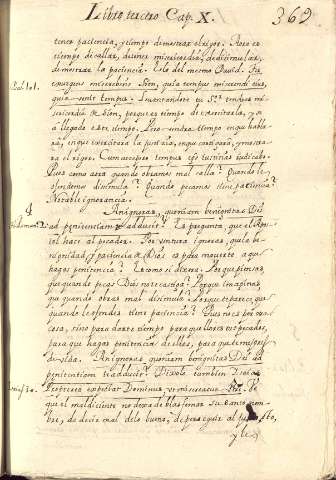 Libro tercero Cap. X. 369
tener paciencia, y tiempo de mostrar el rigor. Agora es
tiempo de callar, de tener misericordia, de disimular,
de mostrar la paciencia. Lo del mismo David. Ex
Psal. 101. surgens misereberis Sion, quia tempus miserendi eius,
quia venit tempus. Levantandote tu Sr. tendras mi
sericordia de Sion, porque es tiempo de exercitarla, y a
a llegado este tiempo. Pero vendra tiempo en que habla
ra, en que exercitara la justicia, en que castigara, y mostra
ra el rigor. Cum accepero tempus ego iustitias iudicabo.
Pues como aora quando obramos mal calla? Quando le
ofendemos disimula? Quando pecamos tiene paciencia?
Notable ignorancia.
An ignoras, quoniam benignitas Dei
ad penitentiam te adducit? Es pregunta, que el Apos
tol hace al pecador. Por ventura ignoras, que la be
nignidad, y paciencia de Dios es para moverte a que
hagas penitencia? Es como si dixera. Porque piensas,
que quando pecas Dios no te castiga? Porque imaginas,
que quando obras mal disimula? Porque te parece, que
quando le ofendes tiene paciencia? Pues no es por otra
cosa, sino para darte tiempo para que llores tus pecados,
para que hagas penitencia de ellos, para que te mejores
de vida. An ignoras, quoniam benignitas Dei ad
penitentiam te adducit? Dixolo tambien Isaias.
Isai. 30. Propterea expectat Dominus ut misereatur
que el maldiciente no dexa de blasfemar su santo nom
bre, de decir mal de lo bueno, de perseguir al